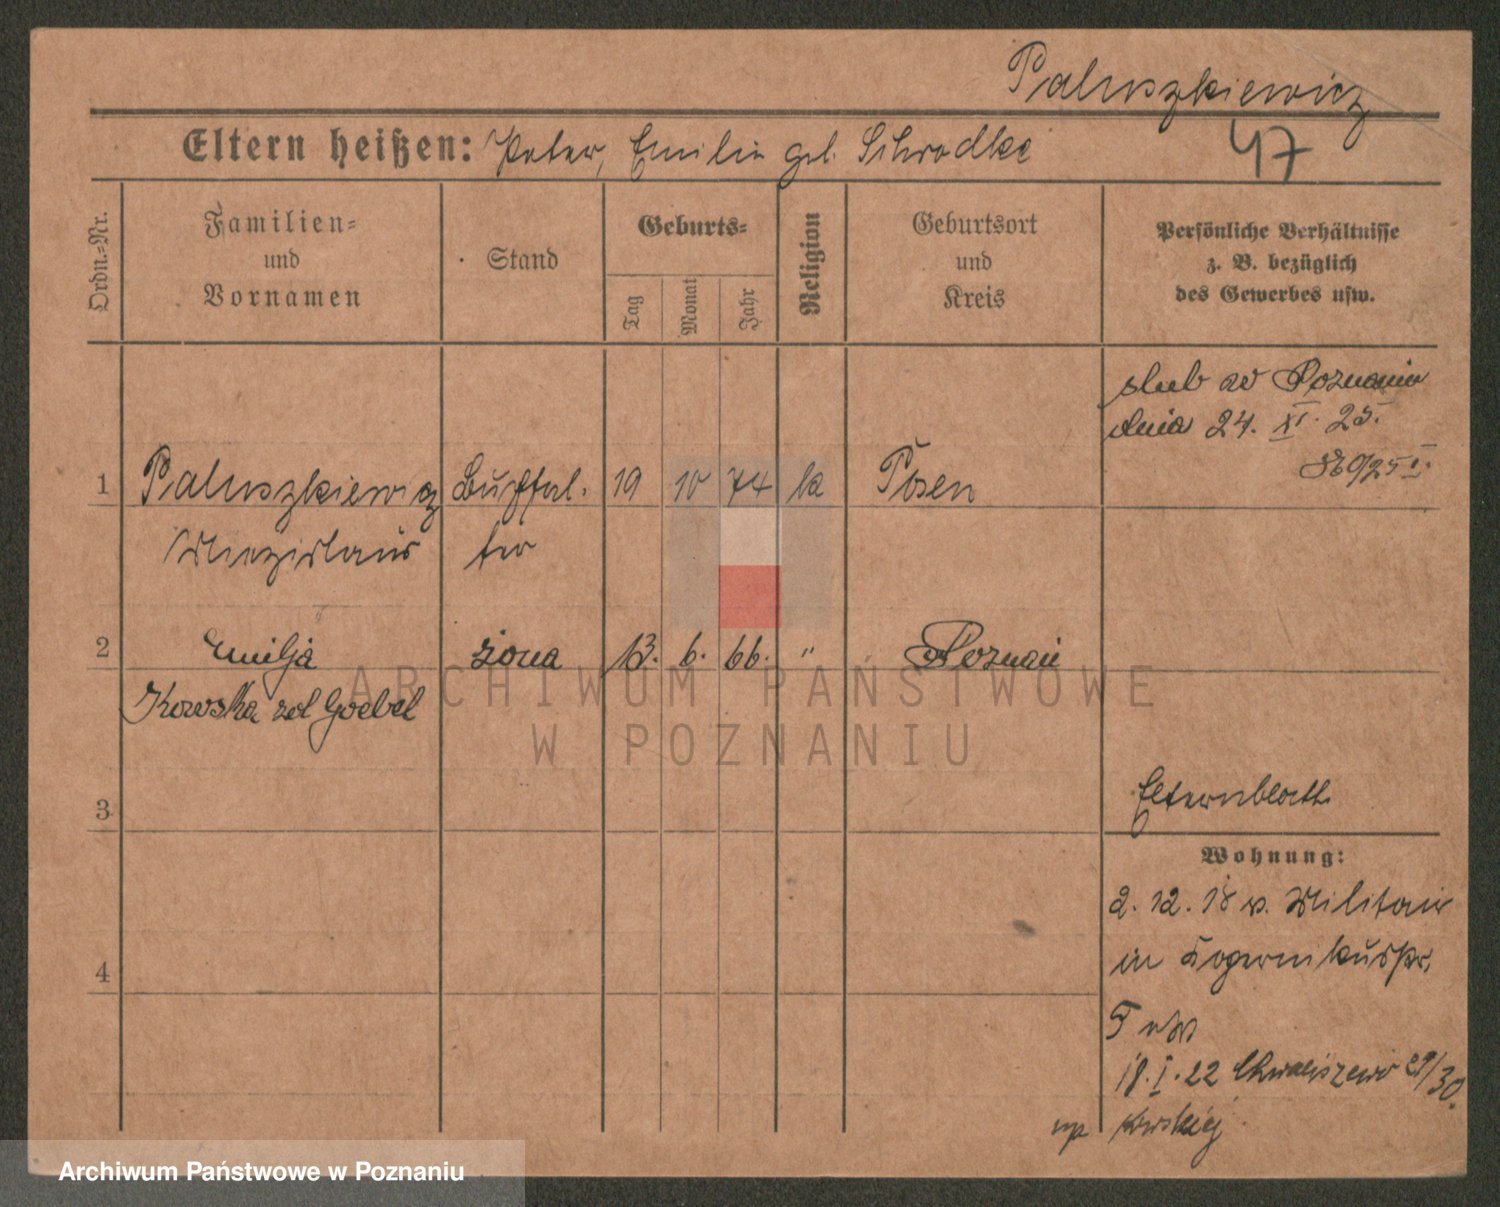 Paluszkiewicz
47
Eltern heißen: Peter, Emilie geb. Schrodke
Ordn.-Nr.
Familien-
und
Vornamen
Stand
Geburts-
Tag
Monat
Jahr
Religion
Geburtsort
und
Kreis
Persönliche Verhältnisse
z. B. bezüglich
des Gewerbes usw.
ślub w Poznaniu
dnia 24. XI. 25.
1 Paluszkiewicz Buchhal- 19 10 74 k Posen
Miezislaus ter
2 Emilja żona 13. 6. 66. " Poznań
Kowska zd Goebel
3
Elternblatt
Wohnung:
2. 12. 18 v. Militair
in Kopernikusstr.
4
5
18. I. 22 Chwaliszewo 29/30.
up Kowskiej
ARCHIWUM PAŃSTWOWE
W POZNANIU
Archiwum Państwowe w Poznaniu